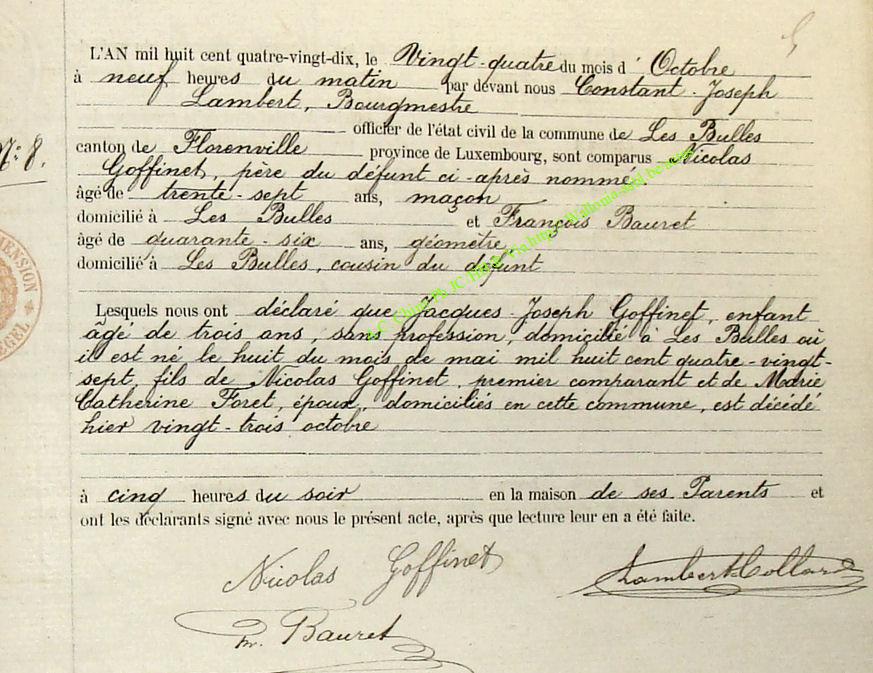 L'AN mil huit cent quatre-vingt-dix, le Vingt-quatre du mois d'Octobre
à neuf heures du matin par devant nous Constant-Joseph
Lambert, Bourgmestre
officier de l'état civil de la commune de Les Bulles
canton de Florenville province de Luxembourg, sont comparus Nicolas
Goffinet, père du défunt ci-après nommé
âgé de trente-sept ans, maçon
domicilié à Les Bulles et François Bauret
âgé de quarante-six ans, géomètre,
domicilié à Les Bulles, cousin du défunt
N° 8.
Lesquels nous ont déclaré que Jacques-Joseph Goffinet, enfant
âgé de trois ans, sans profession, domicilié à Les Bulles où
il est né le huit du mois de mai mil huit cent quatre-vingt-
sept, fils de Nicolas Goffinet, premier comparant et de Marie
Catherine Foret, époux, domiciliés en cette commune, est décédé
hier vingt-trois octobre
à cinq heures du soir en la maison de ses Parents et
ont les déclarants signé avec nous le présent acte, après que lecture leur en a été faite.
Nicolas Goffinet
Lambert-Collard
Fr. Bauret